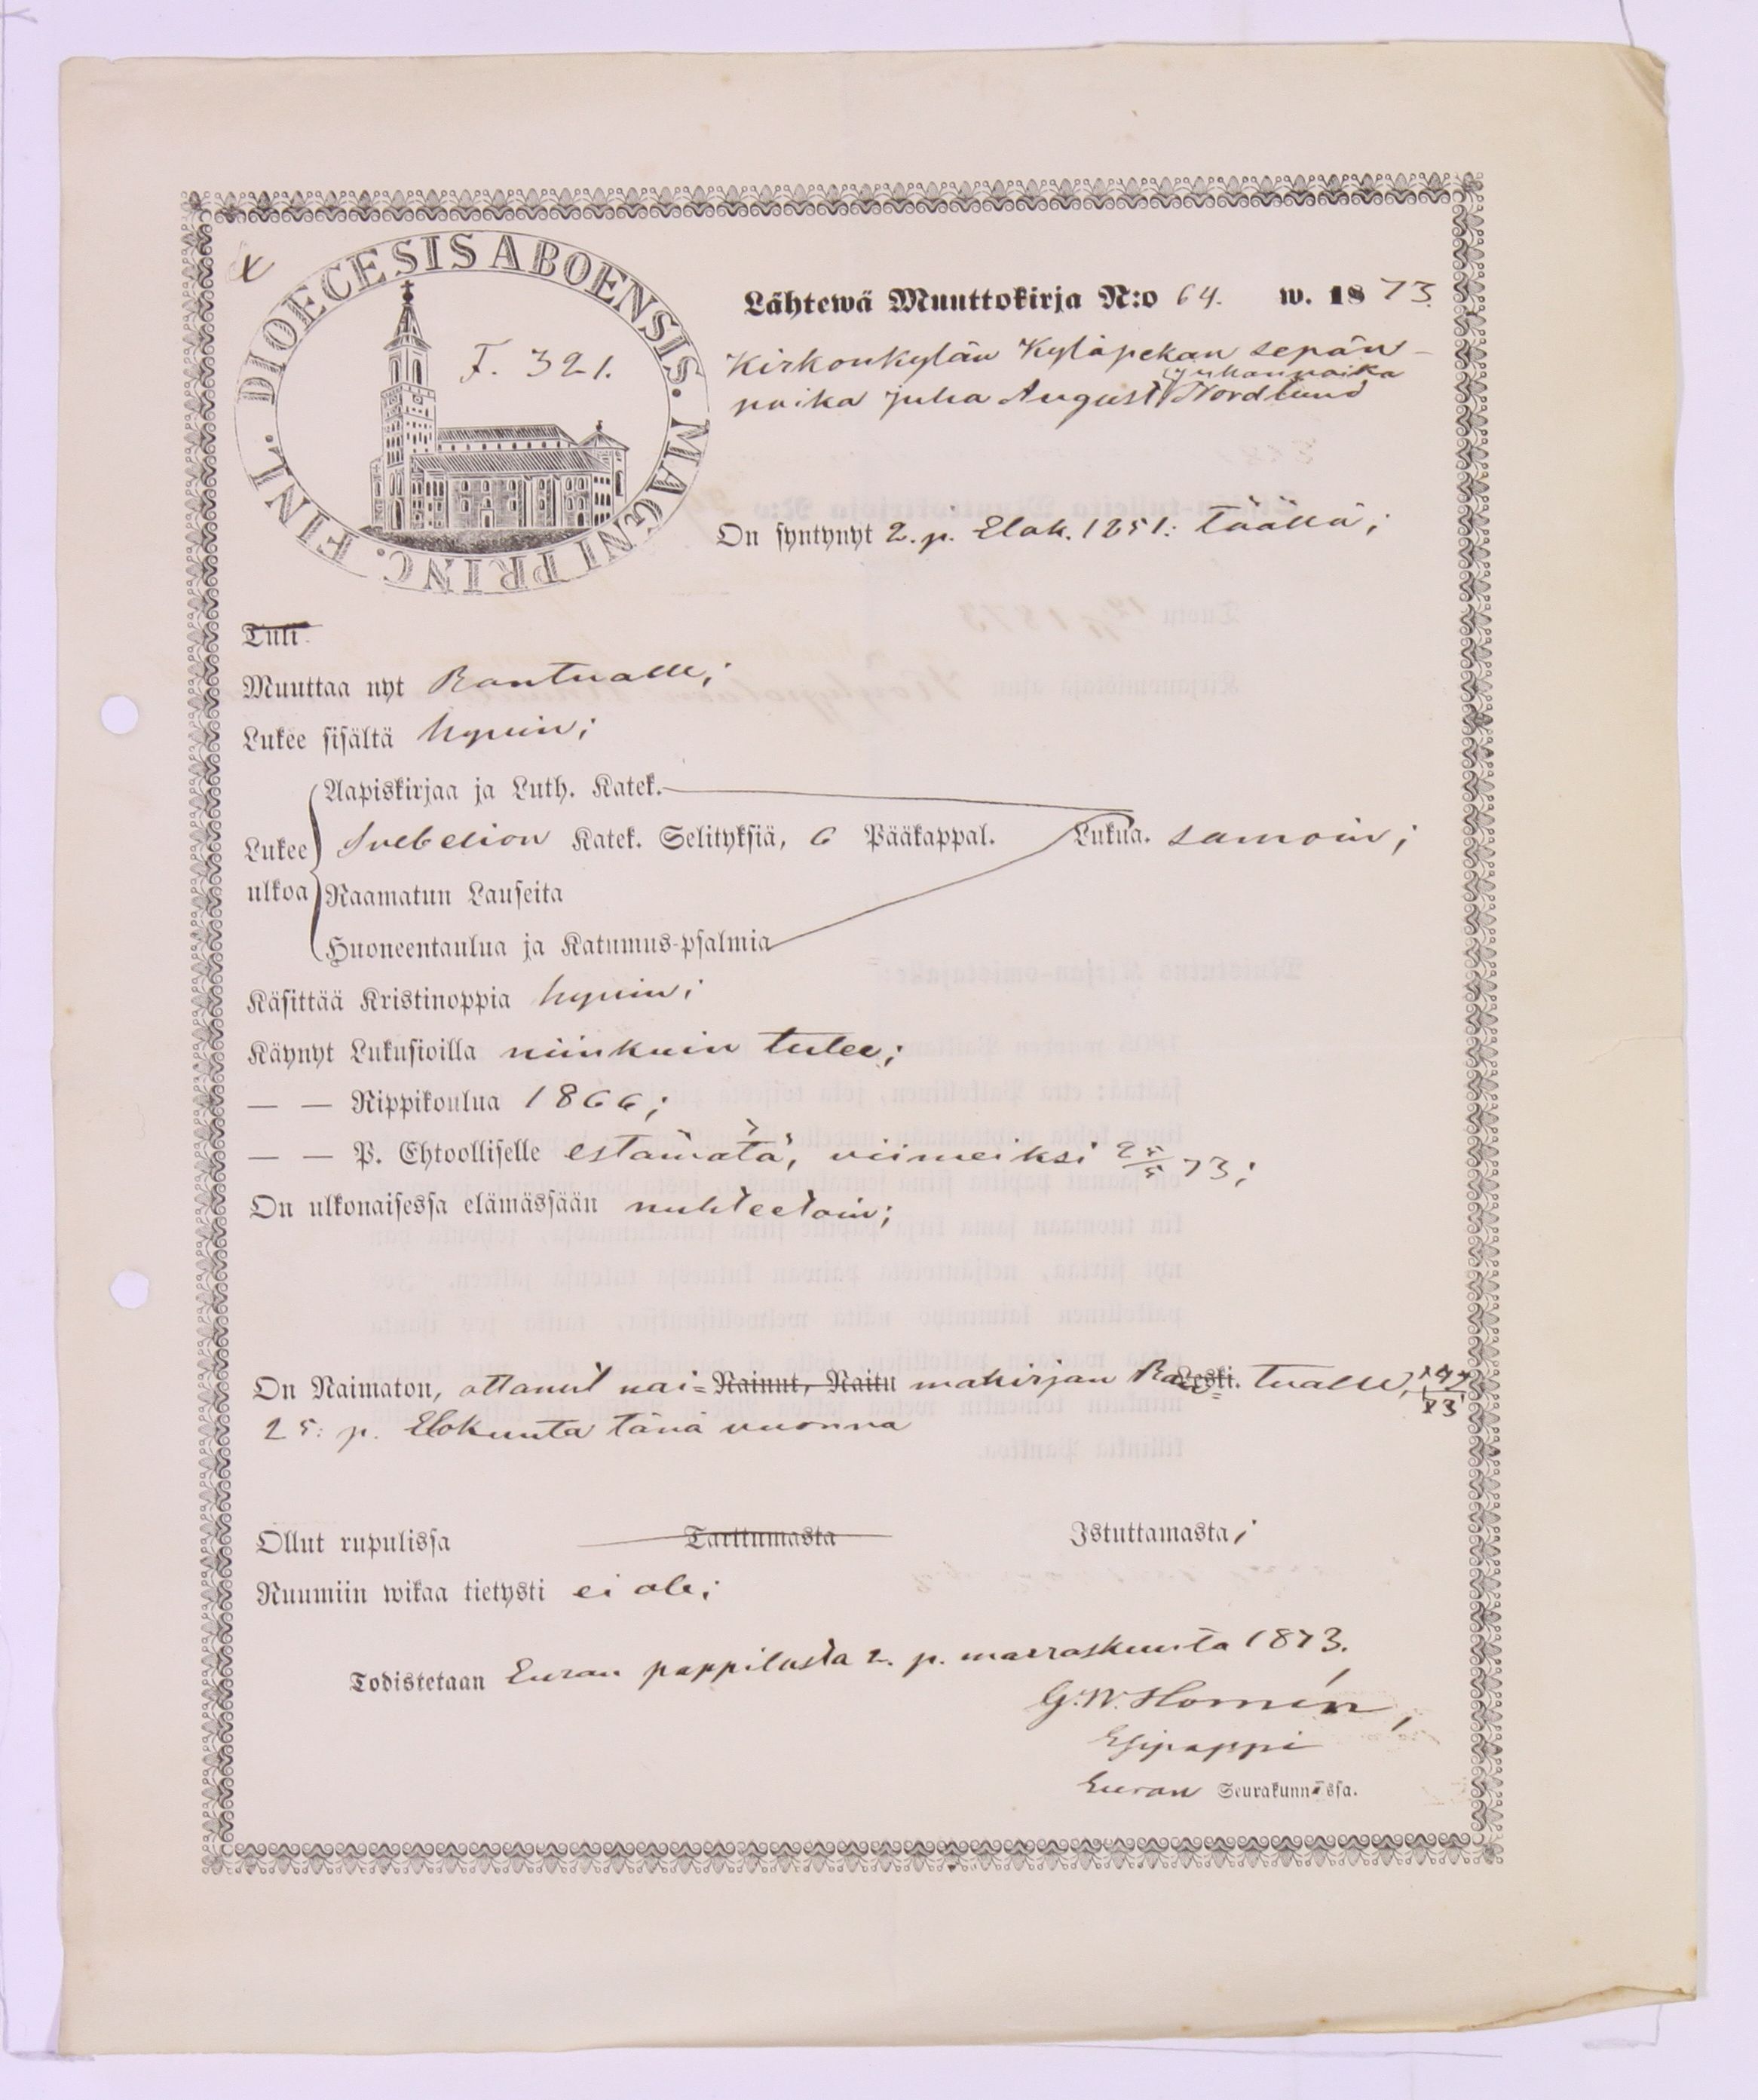 DIOECESIS ABOENSIS. MAGNI PRINC. FINL.
F. 321.
Lähtewä Muuttokirja N:o 64. w. 1873.
Kirkonkylän Kyläpekan sepän-
Juhanpoika
poika Juha August Nordlund
On syntynyt 2. p. Elok. 1851: täällä;
Tuli
Muuttaa nyt Rantualle;
Lukee sisältä hywin;
Aapiskirjaa ja Luth. Katek.
Lukee ulkoa Svebelion Katek. Selityksiä, 6 Pääkappal. Lukua. samoin;
Raamatun Lauseita
Huoneentaulua ja Katumus-psalmia
Käsittää Kristinoppia hywin;
Käynyt Lukusioilla niinkuin tulee;
— — Rippikoulua 1866;
— — P. Ehtoolliselle estämätä, viimeiksi 25/5 73;
On ulkonaisessa elämässään nuhteetoin;
On Naimaton, ottanut nai= Nainut, Naitu makirjan Ran= Leski. tualle,
25: p. Elokuuta tänä vuonna
Ollut rupulissa Tarttumasta Istuttamasta;
Ruumiin wikaa tietysti ei ole;
Todistetaan Euran pappilasta 2. p. marraskuuta 1873.
G. W. Homén,
Esipappi
Euran Seurakunnassa.